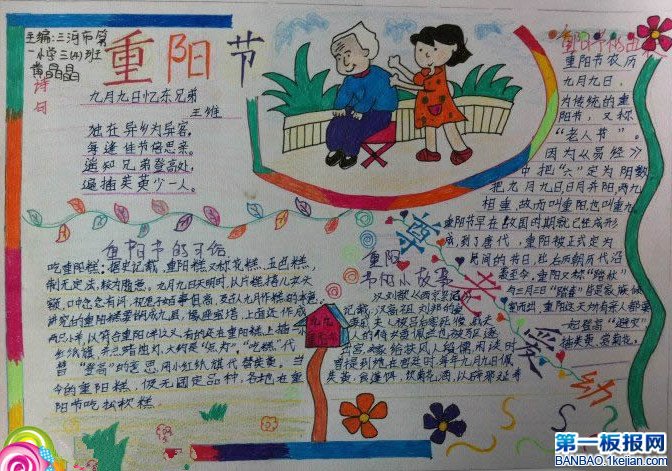 主编:三河市第
一小学三(4)班
黄晶晶
重阳节
诗句
九月九日忆东兄弟
王维
独在异乡为异客,
每逢佳节倍思亲。
遥知兄弟登高处,
遍插茱萸少一人。
重阳节农历
九月九日,
为传统的重
阳节,又称
“老人节”。
因为《易经》
中把“六”定为阴数
把九月九日日月并阳两九
相重,故而叫重阳也叫重九。
重阳节早在战国时期就已经成形
成,到了唐代,重阳被正式定为
民间的节日,此后历朝历代沿
袭至今,重阳又称“踏秋”
与三月三日“踏春”皆是家族倾
室而出,重阳这天所有亲人都要
一起登高“避灾”
插茱萸、赏菊花。
尊老爱幼
吃重阳糕:据史记载,重阳糕又称花糕、五色糕,
制无定法,较为随意。九月九日天明时,以片糕搭儿女头
额,口中念念有词,祝愿子女百事俱高,乃古人九月作糕的本意。
讲究的重阳糕要做成九层,像座宝塔,上面还作成
两只小羊,以符合重阳(羊)之义。有的还在重阳糕上插
红纸旗,并点蜡烛灯。大约是“点灯”、“吃糕”代
替“登高”的意思,用小红纸旗代替茱萸。当
今的重阳糕,仍无固定品种,各地在重
阳节吃松软糕
重阳
节的小故事
第一板报网
BANBAO.1kejian.com